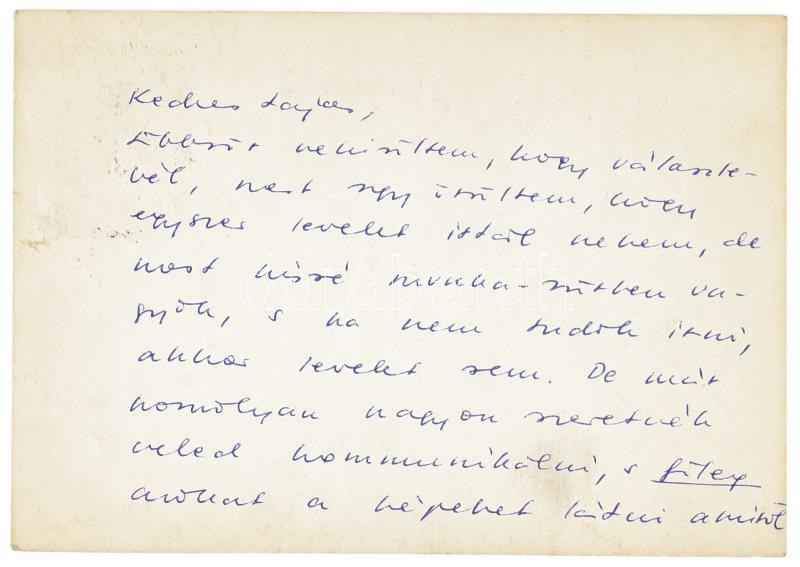 Kedves Lajos,
nekiültem, hogy válaszle-
vél, mert úgy ítéltem, hogy
egyszer levelet írtál nekem, de
most kissé munka-sűrűben va-
gyok, s ha nem tudok írni,
akkor levelet sem. De már
komolyan nagyon szeretnék
veled kommunikálni, s főleg
azokat a képeket látni amiről
darabanth